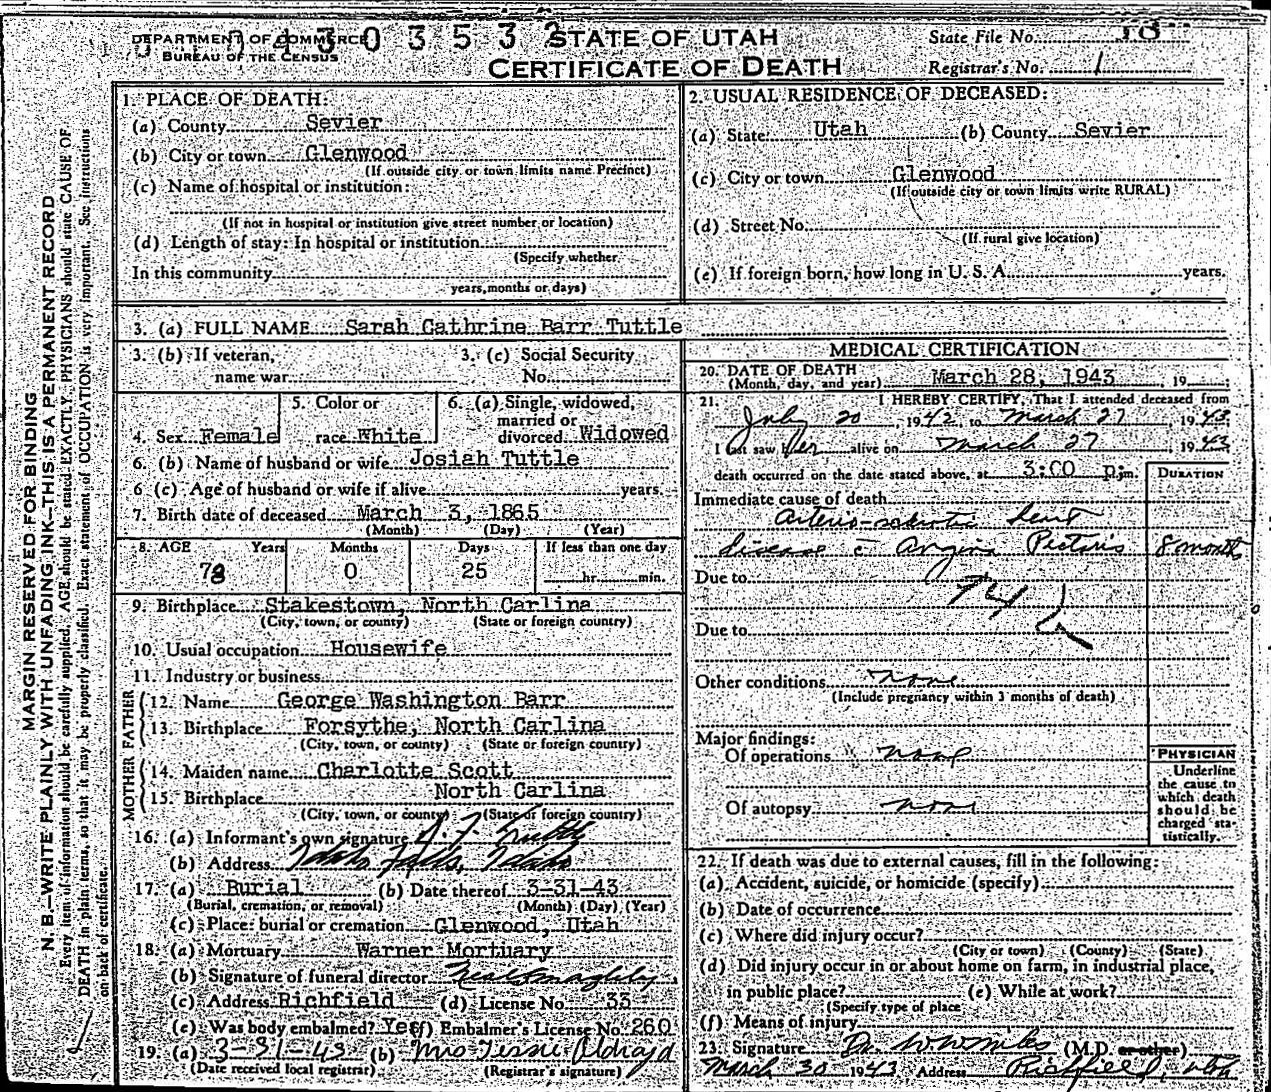 DEPARTMENT OF COMMERCE
BUREAU OF THE CENSUS
4 3 0 3 5 3 2
STATE OF UTAH
CERTIFICATE OF DEATH
State File No. 18
Registrar's No. 1
MARGIN RESERVED FOR BINDING
N. B.—WRITE PLAINLY WITH UNFADING INK—THIS IS A PERMANENT RECORD
Every item of information should be carefully supplied. AGE should be stated EXACTLY. PHYSICIANS should state CAUSE OF
DEATH in plain terms, so that it may be properly classified. Exact statement of OCCUPATION is very important. See instructions
on back of certificate.
1. PLACE OF DEATH:
(a) County Sevier
(b) City or town Glenwood
(If outside city or town limits name Precinct)
(c) Name of hospital or institution:
(If not in hospital or institution give street number or location)
(d) Length of stay: In hospital or institution
(Specify whether
In this community
years, months or days)
2. USUAL RESIDENCE OF DECEASED:
(a) State Utah (b) County Sevier
(c) City or town Glenwood
(If outside city or town limits write RURAL)
(d) Street No.
(If rural give location)
(e) If foreign born, how long in U. S. A. years.
3. (a) FULL NAME Sarah Cathrine Barr Tuttle
3. (b) If veteran,
name war
3. (c) Social Security
No.
4. Sex Female
5. Color or
race White
6. (a) Single, widowed,
married or
divorced Widowed
6. (b) Name of husband or wife Josiah Tuttle
6 (c) Age of husband or wife if alive years.
7. Birth date of deceased March 3, 1865
(Month) (Day) (Year)
8. AGE Years Months Days If less than one day
78 0 25 hr. min.
9. Birthplace Stakestown, North Carlina
(City, town, or county) (State or foreign country)
10. Usual occupation Housewife
11. Industry or business
FATHER
12. Name George Washington Barr
13. Birthplace Forsythe, North Carlina
(City, town, or county) (State or foreign country)
MOTHER
14. Maiden name Charlotte Scott
15. Birthplace North Carlina
(City, town, or county) (State or foreign country)
16. (a) Informant's own signature Tuttle
(b) Address Idaho Falls, Idaho
17. (a) Burial (b) Date thereof 3-31-43
(Burial, cremation, or removal) (Month) (Day) (Year)
(c) Place: burial or cremation Glenwood, Utah
18. (a) Mortuary Warner Mortuary
(b) Signature of funeral director
(c) Address Richfield (d) License No. 33
(e) Was body embalmed? Yes (f) Embalmer's License No. 260
19. (a) 3-31-43 (b) Mrs Tessie Oldroyd
(Date received local registrar) (Registrar's signature)
MEDICAL CERTIFICATION
20. DATE OF DEATH
(Month, day, and year) March 28, 1943, 19
21. I HEREBY CERTIFY, That I attended deceased from
July 20, 1942, to March 27, 1943
I last saw her alive on March 27, 1943
death occurred on the date stated above, at 3:00 p.m.
DURATION
Immediate cause of death
Arterio-sclerotic heart
disease c Angina Pectoris 8 months
Due to
Due to
Other conditions none
(Include pregnancy within 3 months of death)
Major findings:
Of operations none
Of autopsy none
PHYSICIAN
Underline
the cause to
which death
should be
charged sta-
tistically.
22. If death was due to external causes, fill in the following:
(a) Accident, suicide, or homicide (specify)
(b) Date of occurrence
(c) Where did injury occur?
(City or town) (County) (State)
(d) Did injury occur in or about home on farm, in industrial place,
in public place? (e) While at work?
(Specify type of place
(f) Means of injury
23. Signature Dr. (M.D. or other)
March 30 1943 Address Richfield, Utah